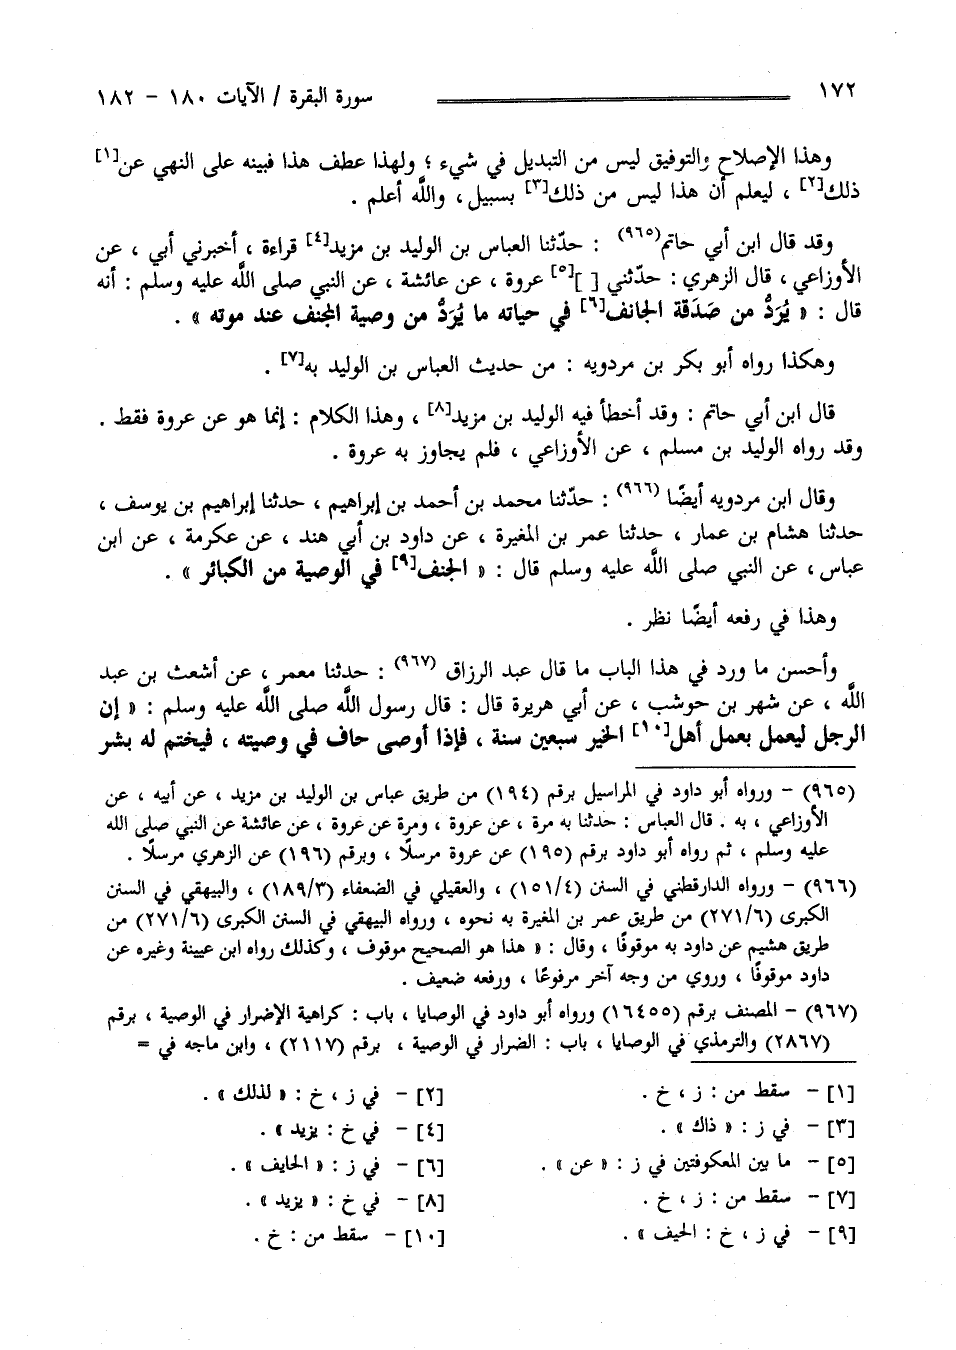 ١٧٢ سورة البقرة / الآيات ١٨٠ - ١٨٢
وهذا الإصلاح والتوفيق ليس من التبديل في شيء ؛ ولهذا عطف هذا فبينه على النهي عن[١]
ذلك[٢] ، ليعلم أن هذا ليس من ذلك[٣] بسبيل ، واللَّه أعلم .
وقد قال ابن أبي حاتم(٩٦٥) : حدّثنا العباس بن الوليد بن مزيد[٤] قراءة ، أخبرني أبي ، عن
الأوزاعي ، قال الزهري : حدّثني [ ][٥] عروة ، عن عائشة ، عن النبي صلى اللَّه عليه وسلم : أنه
قال : « يُرَدُّ من صَدَقة الجانف[٦] في حياته ما يُرَدُّ من وصية المجنف عند موته » .
وهكذا رواه أبو بكر بن مردويه : من حديث العباس بن الوليد به[٧] .
قال ابن أبي حاتم : وقد أخطأ فيه الوليد بن مزيد[٨] ، وهذا الكلام : إنما هو عن عروة فقط .
وقد رواه الوليد بن مسلم ، عن الأوزاعي ، فلم يجاوز به عروة .
وقال ابن مردويه أيضًا (٩٦٦) : حدّثنا محمد بن أحمد بن إبراهيم ، حدثنا إبراهيم بن يوسف ،
حدثنا هشام بن عمار ، حدثنا عمر بن المغيرة ، عن داود بن أبي هند ، عن عكرمة ، عن ابن
عباس ، عن النبي صلى اللَّه عليه وسلم قال : « الجنف[٩] في الوصية من الكبائر » .
وهذا في رفعه أيضًا نظر .
وأحسن ما ورد في هذا الباب ما قال عبد الرزاق (٩٦٧) : حدثنا معمر ، عن أشعث بن عبد
اللَّه ، عن شهر بن حوشب ، عن أبي هريرة قال : قال رسول اللَّه صلى اللَّه عليه وسلم : « إن
الرجل ليعمل بعمل أهل[١٠] الخير سبعين سنة ، فإذا أوصى حاف في وصيته ، فيختم له بشر
(٩٦٥) - ورواه أبو داود في المراسيل برقم (١٩٤) من طريق عباس بن الوليد بن مزيد ، عن أبيه ، عن
الأوزاعي ، به . قال العباس : حدثنا به مرة ، عن عروة ، ومرة عن عروة ، عن عائشة عن النبي صلى الله
عليه وسلم ، ثم رواه أبو داود برقم (١٩٥) عن عروة مرسلًا ، وبرقم (١٩٦) عن الزهري مرسلًا .
(٩٦٦) - ورواه الدارقطني في السنن (١٥١/٤) ، والعقيلي في الضعفاء (١٨٩/٣) ، والبيهقي في السنن
الكبرى (٢٧١/٦) من طريق عمر بن المغيرة به نحوه ، ورواه البيهقي في السنن الكبرى (٢٧١/٦) من
طريق هشيم عن داود به موقوفًا ، وقال : « هذا هو الصحيح موقوف ، وكذلك رواه ابن عيينة وغيره عن
داود موقوفًا ، وروي من وجه آخر مرفوعًا ، ورفعه ضعيف .
(٩٦٧) - المصنف برقم (١٦٤٥٥) ورواه أبو داود في الوصايا ، باب : كراهية الإضرار في الوصية ، برقم
(٢٨٦٧) والترمذي في الوصايا ، باب : الضرار في الوصية ، برقم (٢١١٧) ، وابن ماجه في =
[١] - سقط من : ز ، خ . [٢] - في ز ، خ : « لذلك » .
[٣] - في ز : « ذاك » . [٤] - في خ : يزيد » .
[٥] - ما بين المعكوفتين في ز : « عن » . [٦] - في ز : « الحايف » .
[٧] - سقط من : ز ، خ . [٨] - في خ : « يزيد » .
[٩] - في ز ، خ : الحيف » . [١٠] - سقط من : خ .